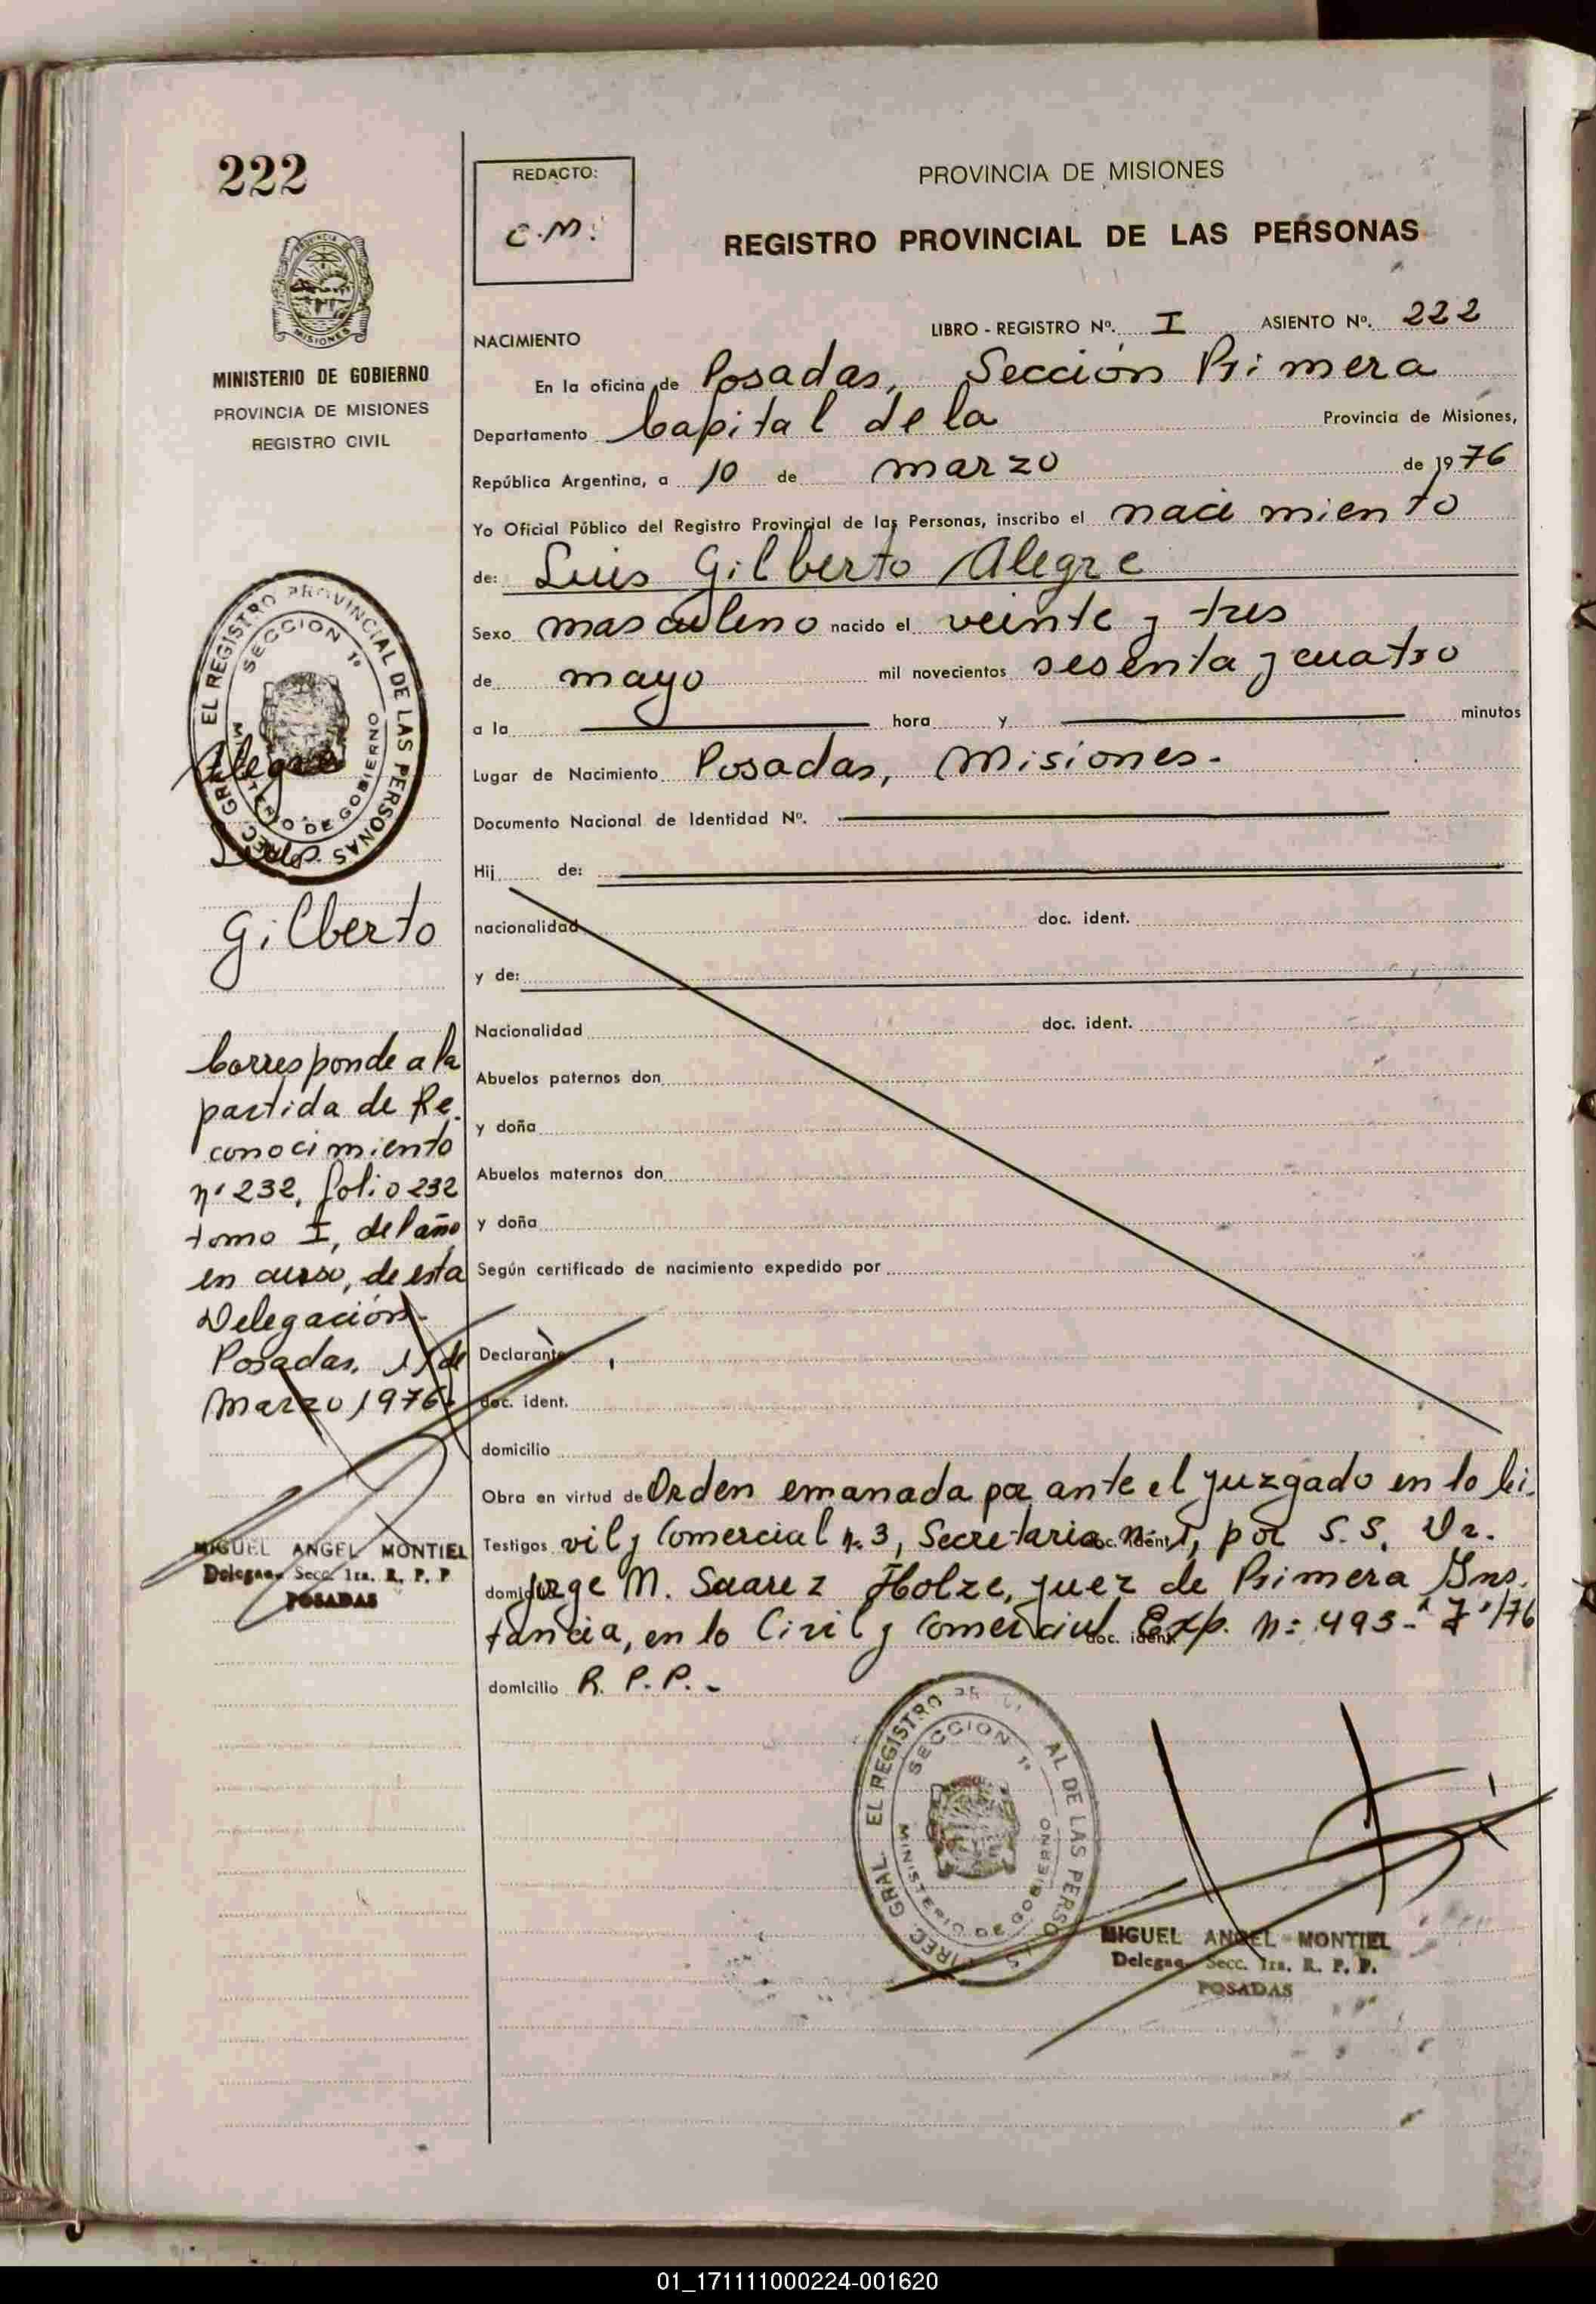 222
REDACTO:
C.M.
PROVINCIA DE MISIONES
REGISTRO PROVINCIAL DE LAS PERSONAS
PROVINCIA DE
MISIONES
MINISTERIO DE GOBIERNO
PROVINCIA DE MISIONES
REGISTRO CIVIL
LIBRO - REGISTRO Nº. I ASIENTO Nº. 222
NACIMIENTO
En la oficina de Posadas, Sección Primera
Departamento Capital de la Provincia de Misiones,
República Argentina, a 10 de marzo de 1976
Yo Oficial Público del Registro Provincial de las Personas, inscribo el nacimiento
de: Luis Gilberto Alegre
Sexo masculino nacido el veinte y tres
de mayo mil novecientos sesenta y cuatro
a la hora y minutos
Lugar de Nacimiento Posadas, Misiones.-
Documento Nacional de Identidad Nº.
Hij de:
nacionalidad doc. ident.
y de:
Nacionalidad doc. ident.
Abuelos paternos don
y doña
Abuelos maternos don
y doña
Según certificado de nacimiento expedido por
Declarante
doc. ident.
domicilio
Obra en virtud de Orden emanada por ante el juzgado en lo Ci-
Testigos vil y Comercial n. 3, Secretaria doc. ident. nº 1, por S.S. Dr.
domi Jorge M. Suarez Holze, juez de Primera Ins.
tancia, en lo Civil y Comercial doc. ident. Exp. nº 493-"J"/76
domicilio R. P.P.-
DIREC. GRAL. EL REGISTRO PROVINCIAL DE LAS PERSONAS
SECCION 1º
MINISTERIO DE GOBIERNO
Alegre
Luis
Gilberto
Corresponde a la
partida de Re-
conocimiento
nº 232, folio 232
tomo I, del año
en curso, de esta
Delegación-
Posadas, de
Marzo 1976.
MIGUEL ANGEL MONTIEL
Delegado Secc. 1ra. R. P. P
POSADAS
DIREC. GRAL. EL REGISTRO PR AL DE LAS PERSO S
SECCION 1º
MINISTERIO DE GOBIERNO
MIGUEL ANGEL MONTIEL
Delegado Secc. 1ra. R. P. P.
POSADAS
01_171111000224-001620